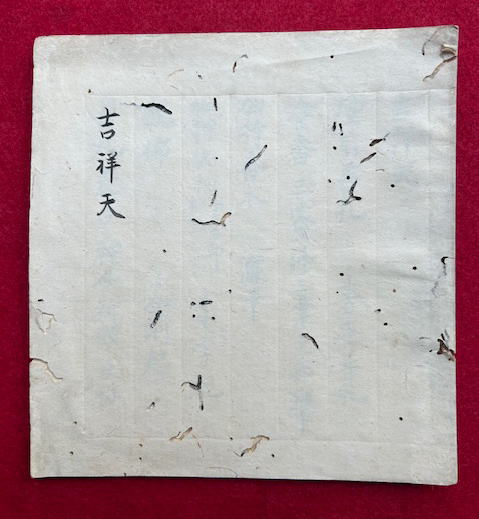 吉祥天